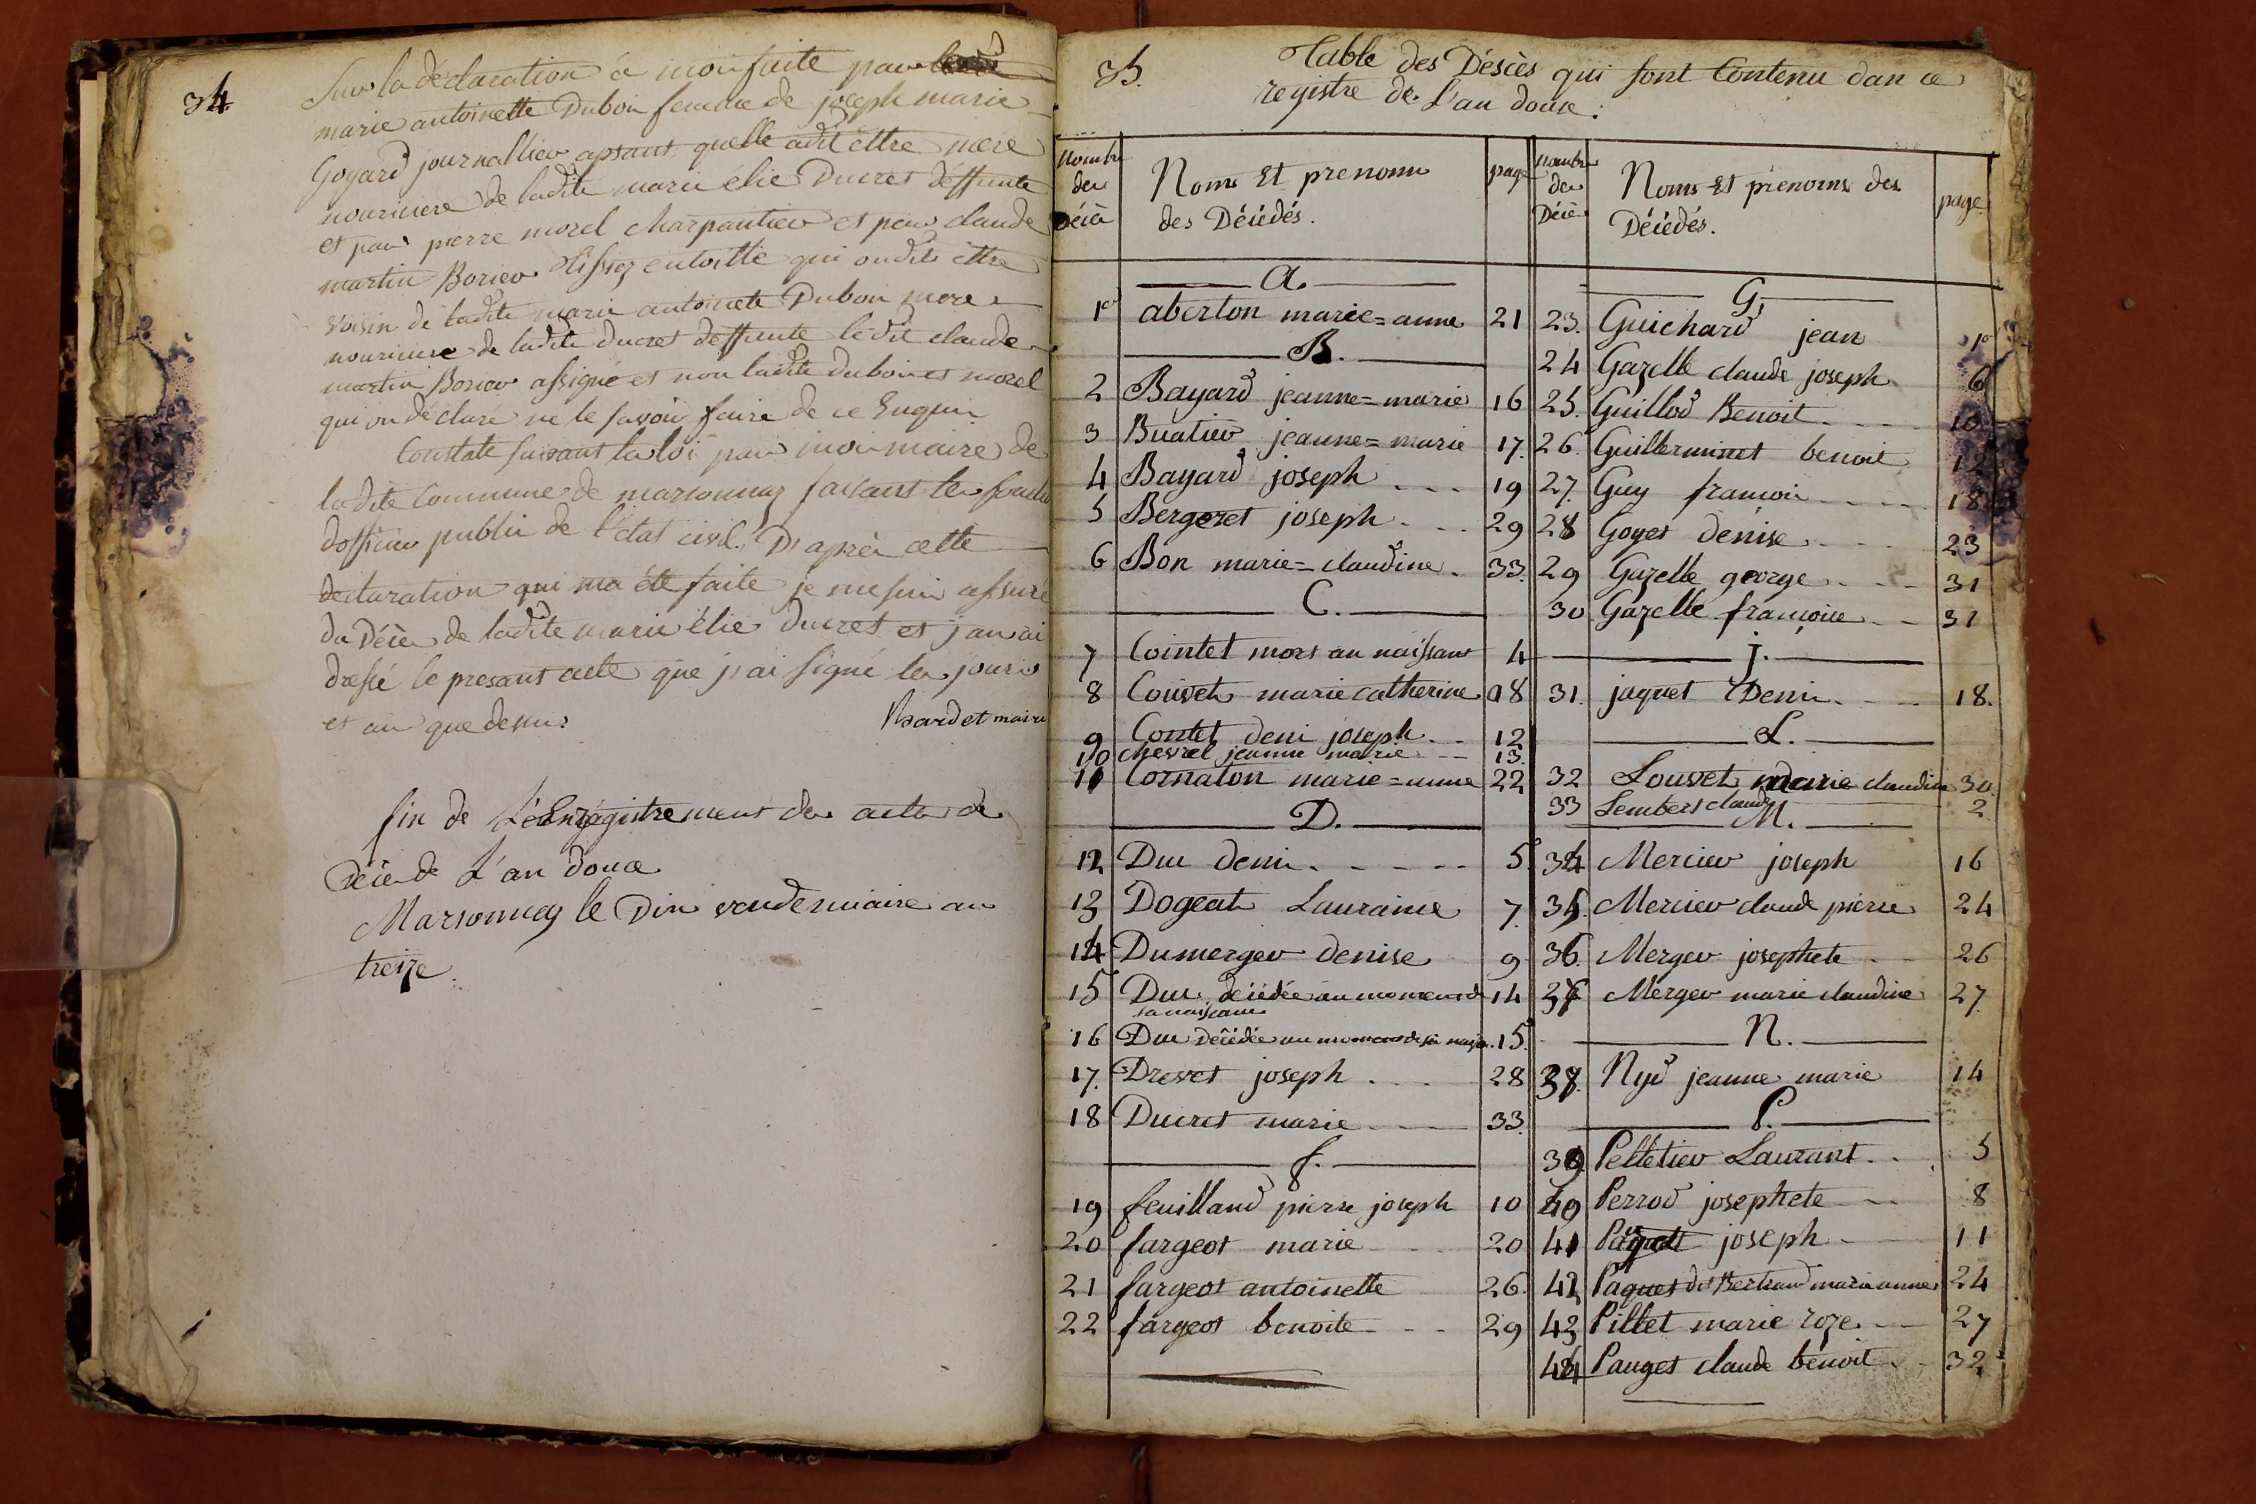 34
Sur la déclaration à moi faite par
marie antoinette Duboin femme de joseph marie
Goyard journallier apsant quelle adit ettre mere
nouriciere de ladite marie élie Ducret deffunte
et par pierre morel charpantier et par claude
martin Borier tissiez entoille qui ondits ettre
voisin de ladite marie antoinete Duboin mere
nouriciere de ladite ducret deffunte ledit claude
martin Borier assigné et non ladite duboin et morel
qui on declaré ne le savoir faire de ce Enquin
Constaté suivant la loi par moi maire de
ladite Commune de marsonnaz faisant les
dofficier publi de l'état civil. D'après cette
declaration qui ma été faite je me suis assuré
du Décès de ladite marie élie ducret et j'an ai
dressé le presant acte que j'ai signé les jours
et an que dessus
Nardet maire
fin de L'éenrégistrement des actes de
Décès de L'an douce
Marsonnay le Dix vendemiaire an
treize.
35.
Table des Déscès qui sont Contenu dan ce
registre de L'an douce.
Nombre des Décès | Noms Et prenoms des Décédés. | page
A.
1er aberton marie=anne 21
B.
2 Bayard jeanne=marie 16
3 Buatier jeanne=marie 17.
4 Bayard joseph 19
5 Bergeret joseph 29
6 Bon marie=claudine 33.
C.
7 Cointet mort au naissant 4
8 Couvet marie catherine 18
9 Contet deni joseph 12
10 chevrel jeanne marie 13.
11 Cornaton marie=anne 22
D.
12 Duc deni 5
13 Dogeat Lauraine 7.
14 Dumerger denise 9
15 Duc décédée au moment de 14
sa naissance
16 Duc décédée au moment de sa naiss. 15.
17. Drevet joseph 28
18 Ducret marie 33.
f.
19 feuilland pierre joseph 10
20 fargeot marie 20
21 fargeot antoinette 26.
22 fargeot benoite 29
nombre des Décès | Noms Et prenoms des Décédés. | page
G.
23. Guichard jean 1er
24 Gazelle claude joseph 6
25. Guillod Benoit 10
26. Guillerminet benoit 12
27. Guy francois 18
28 Goyet denise 23
29 Gazelle george 31
30 Gazelle francoise 31
j.
31. jaquet Deni 18.
L.
32 Louvet marie claudine 30.
33 Lembert claude 2.
M.
34 Mercier joseph 16
35. Mercier claude pierre 24
36. Merger josephete 26
37 Merger marie claudine 27.
N.
38. Nyd jeanne marie 14
P.
39 Pelletier Laurant 5
40 Perrod josephete 8
41 joseph 11
42 Paquet dit Bertrand marie anne 24
43 Pillet marie roze 27
44 Pauget claude benoit 32